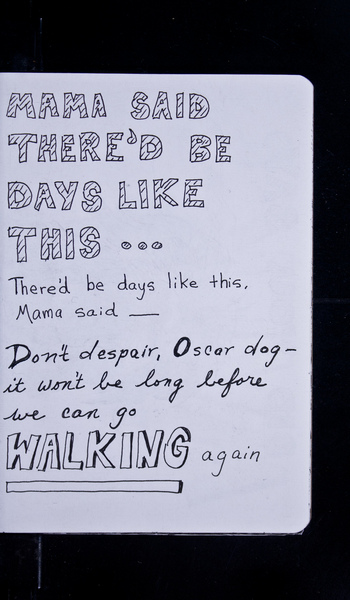 MAMA SAID
THERE'D BE
DAYS LIKE
THIS ...
There'd be days like this,
Mama said —
Don't despair, Oscar dog—
it won't be long before
we can go
WALKING again